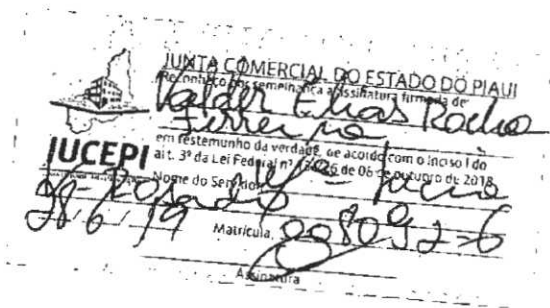 JUNTA COMERCIAL DO ESTADO DO PIAUI
Reconheço por semelhança a assinatura firmada de
Valder Elias Rocha
Ferreira
em testemunho da verdade, de acordo com o inciso I do
JUCEPI
art. 3º da Lei Federal nº 13.726 de 06 de outubro de 2018
Nome do Servidor
28/6/19
Matrícula, 008092-6
Assinatura